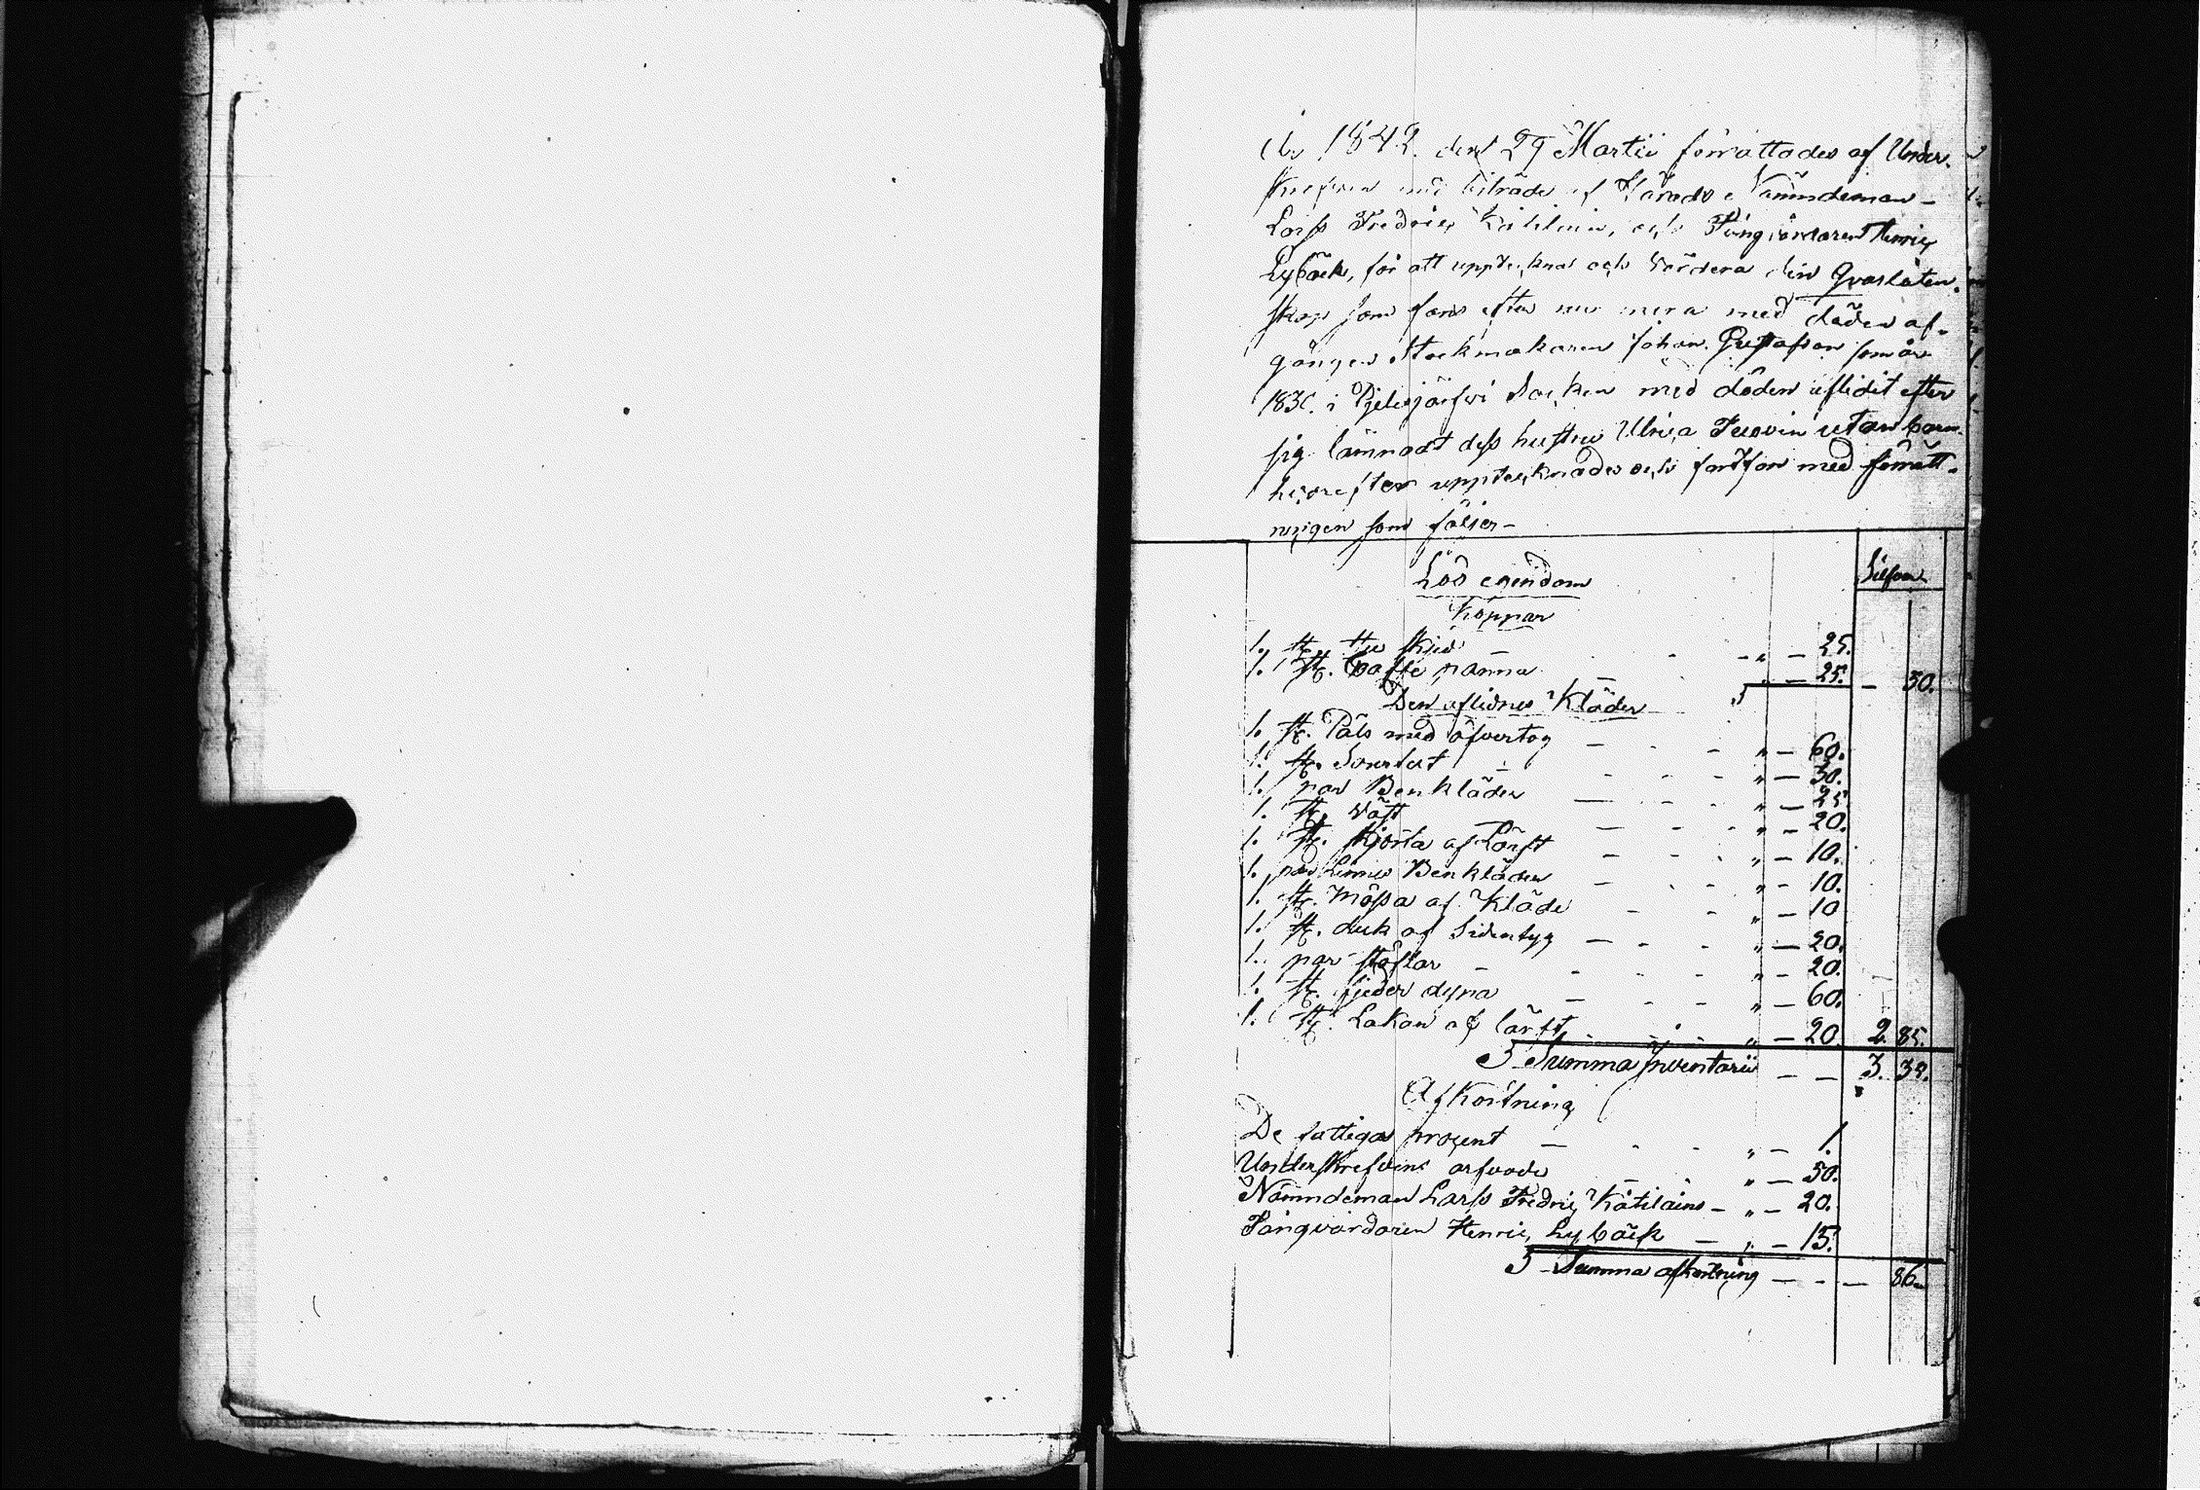 År 1842. den 29 Martii förrättades af Under-
skrefven med biträde af Härads Nämndeman
Larss Fredric Kätilain, och Fångvardaren Henric
Lybäck, för att uppteckna och värdera den Qvarlåten-
skap som fans efter nu mera med döden af-
gångne Stockmakaren Johan Gustafson som år
183 i Pjelisjärfvi Socken med döden aflidit efter
sig lämnadt dess hustru Ulrica utan barn
hvarefter upptecknades och fortfor med förrätt-
ningen som följer-
Silfver
Lös egendom
Koppar
1. st. The 25.
1. st. Caffe panna — " — 25. — 50.
Den aflidnes Kläder
1. st. Päls med öfvertog — " — 60.
1. st. Surtut — " — 30.
1. par Benkläder — " — 25
1. st. väst — " — 20.
1. st. skjorta af Lärft — " — 10.
1. par Linnes Benkläder — " — 10.
1. st. mössa af Kläde — " — 10
1. st. duk af Sidentyg — " — 20.
1. par stöflar — " — 20.
1. st. fjeder dyna — " — 60.
1. st. Lakan af lärft — " — 20. 2. 85.
Summa Inventarii — — 3. 35.
Afkortning
De fattigas procent — " — 1.
Underskrefvens arfvode — " — 50.
Nämndeman Larss Fredric Kätilains — " — 20.
Fångvardaren Henric Lybäck — " — 15.
Summa afkortning — — 86.